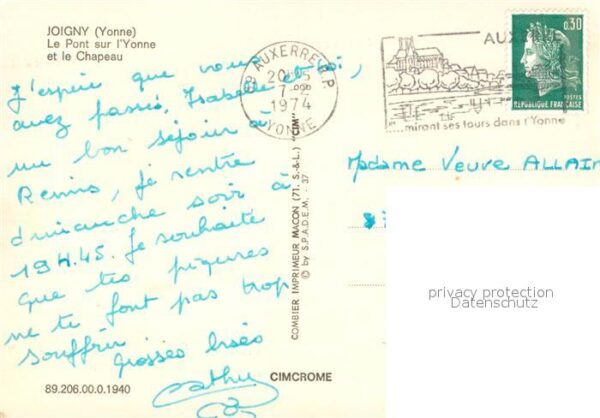 JOIGNY (Yonne)
Le Pont sur l'Yonne
et le Chapeau
J'espère que vous et toi,
avez passé, Isabelle
un bon séjour à
Reims, je rentre
dimanche soir à
19H.45. Je souhaite
que tes piqures
ne te font pas trop
souffrir
Grosses bises
Cathy
89.206.00.0.1940
CIMCROME
COMBIER IMPRIMEUR MACON (71. S.-&-L.) "CIM"
© by S.P.A.D.E.M. - 37
89 AUXERRE R.P.
20H15
7-
1974
YONNE
AUXERRE
...mirant ses tours dans l'Yonne
0,30
POSTES
REPUBLIQUE FRANÇAISE
Madame Veuve ALLAI
privacy protection
Datenschutz